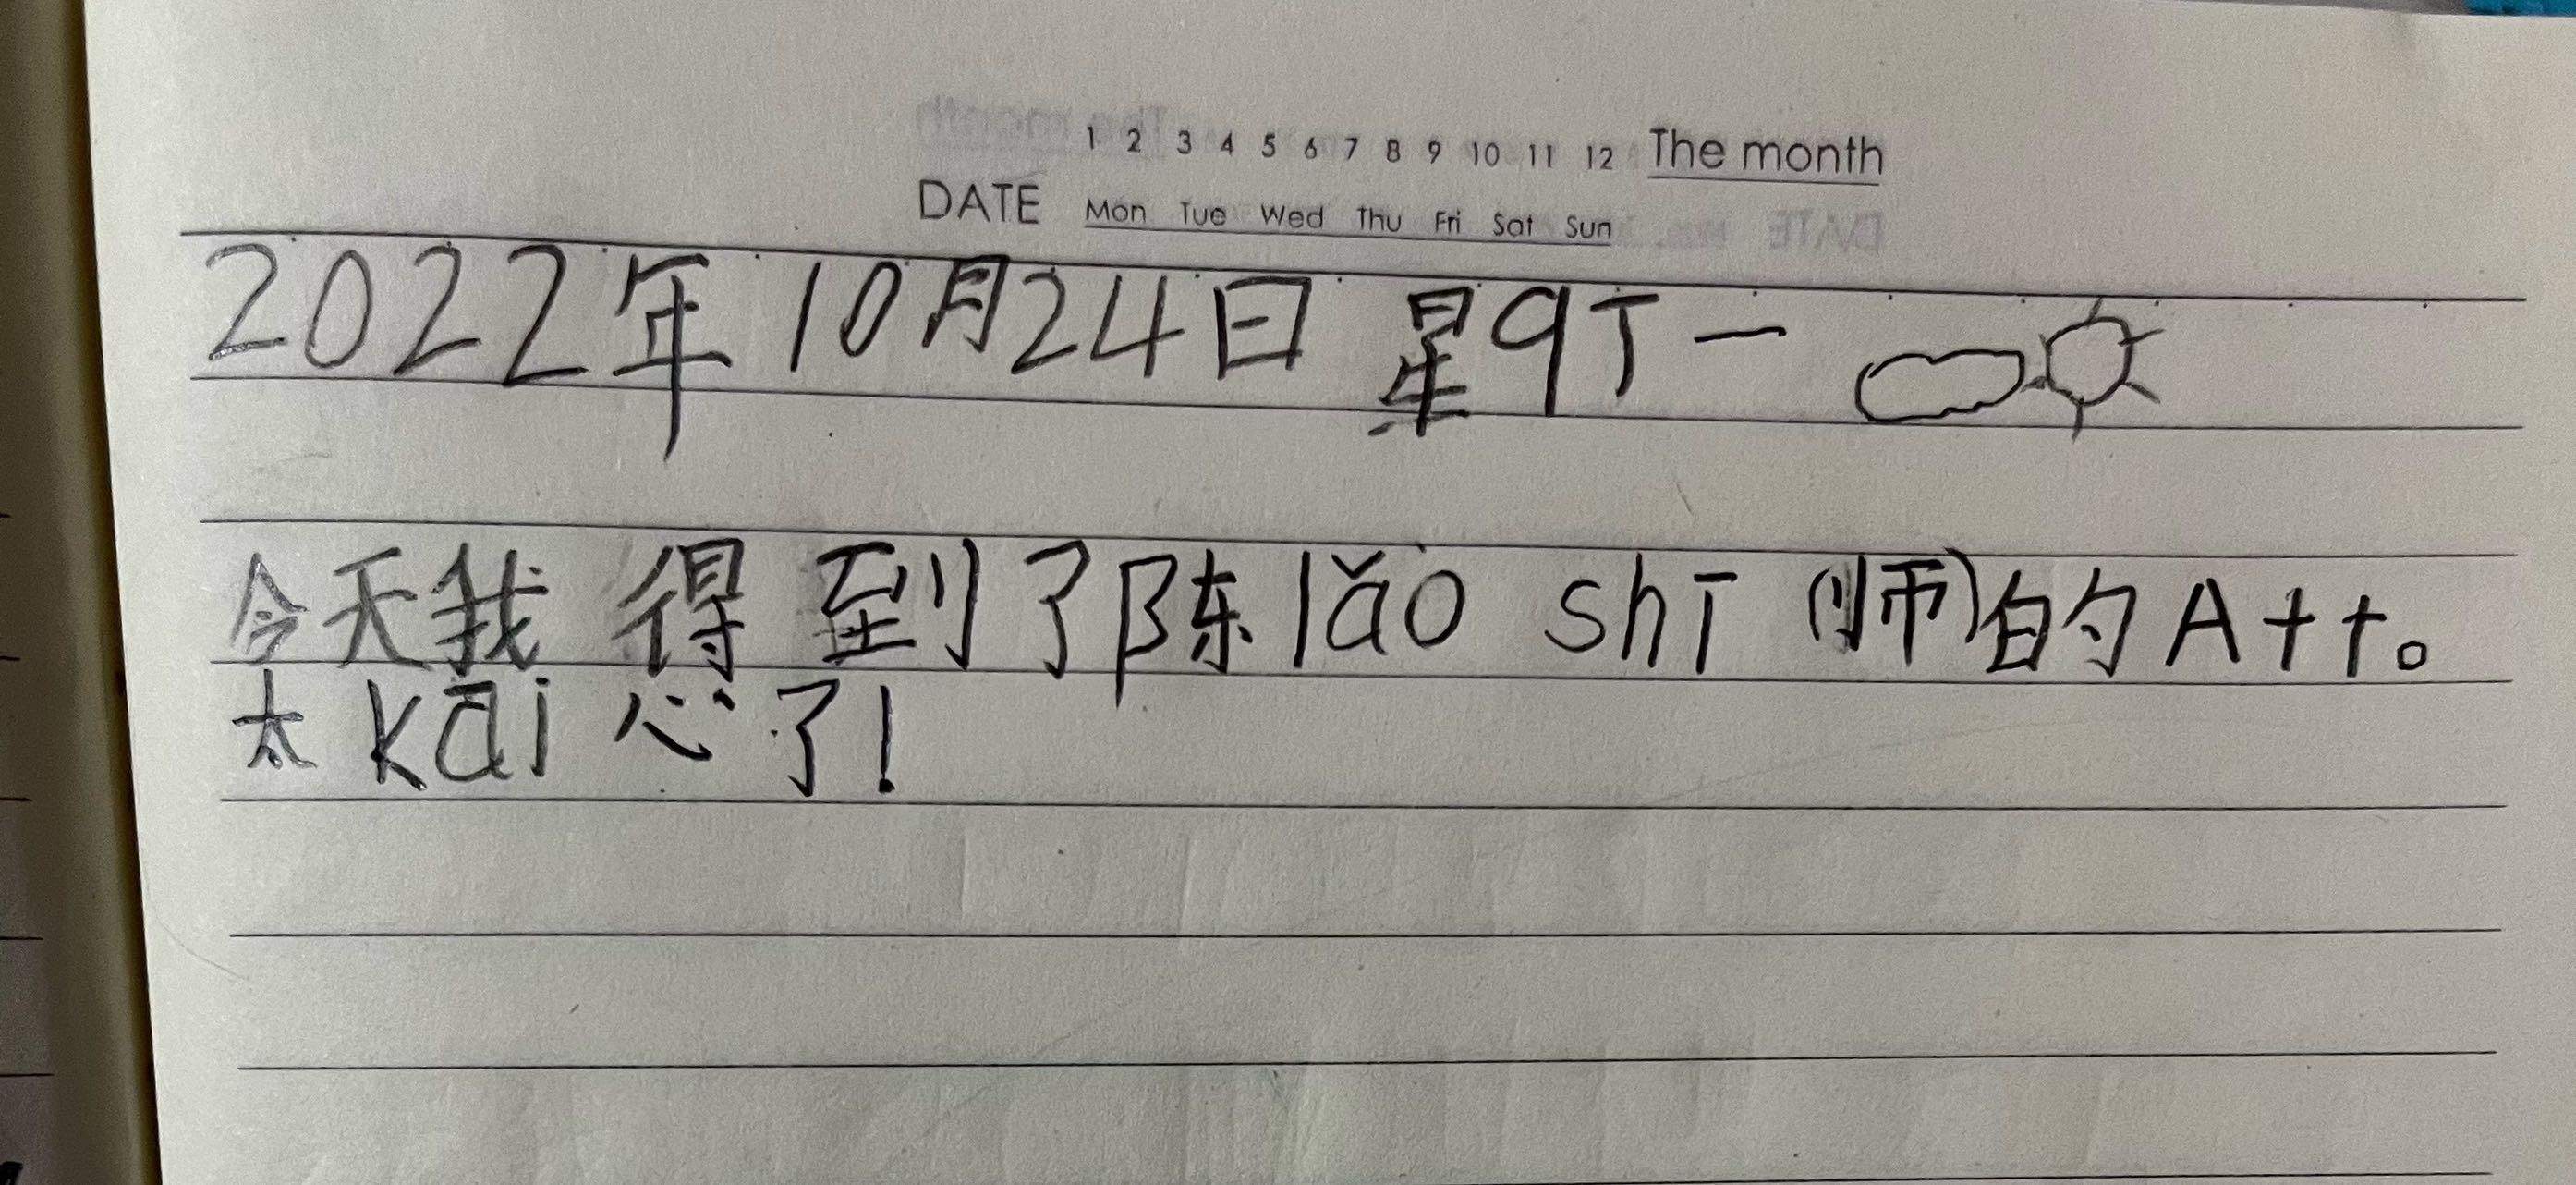 1 2 3 4 5 6 7 8 9 10 11 12 The month
DATE Mon Tue Wed Thu Fri Sat Sun
2022年10月24日 星qī一
今天我得到了陈lǎo shī(师)的A++。
太kāi心了!